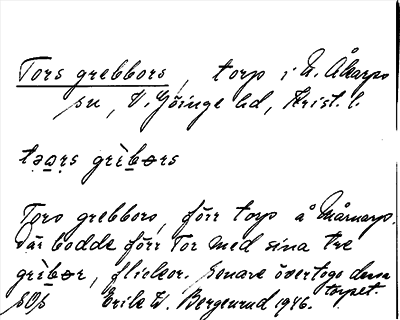 Tors grebbors, torp i N. Åkarps
sn, V. Göinge hd, Krist. l.
təo̲rs grèb̲ɵrs
Tors grebbors, förr torp å Mårnarp.
Där bodde förr Tor med sina tre
grèb̲ɵr, flickor. Senare övertogo dessa
torpet.
SOS Erik W. Bergenrud 1946.